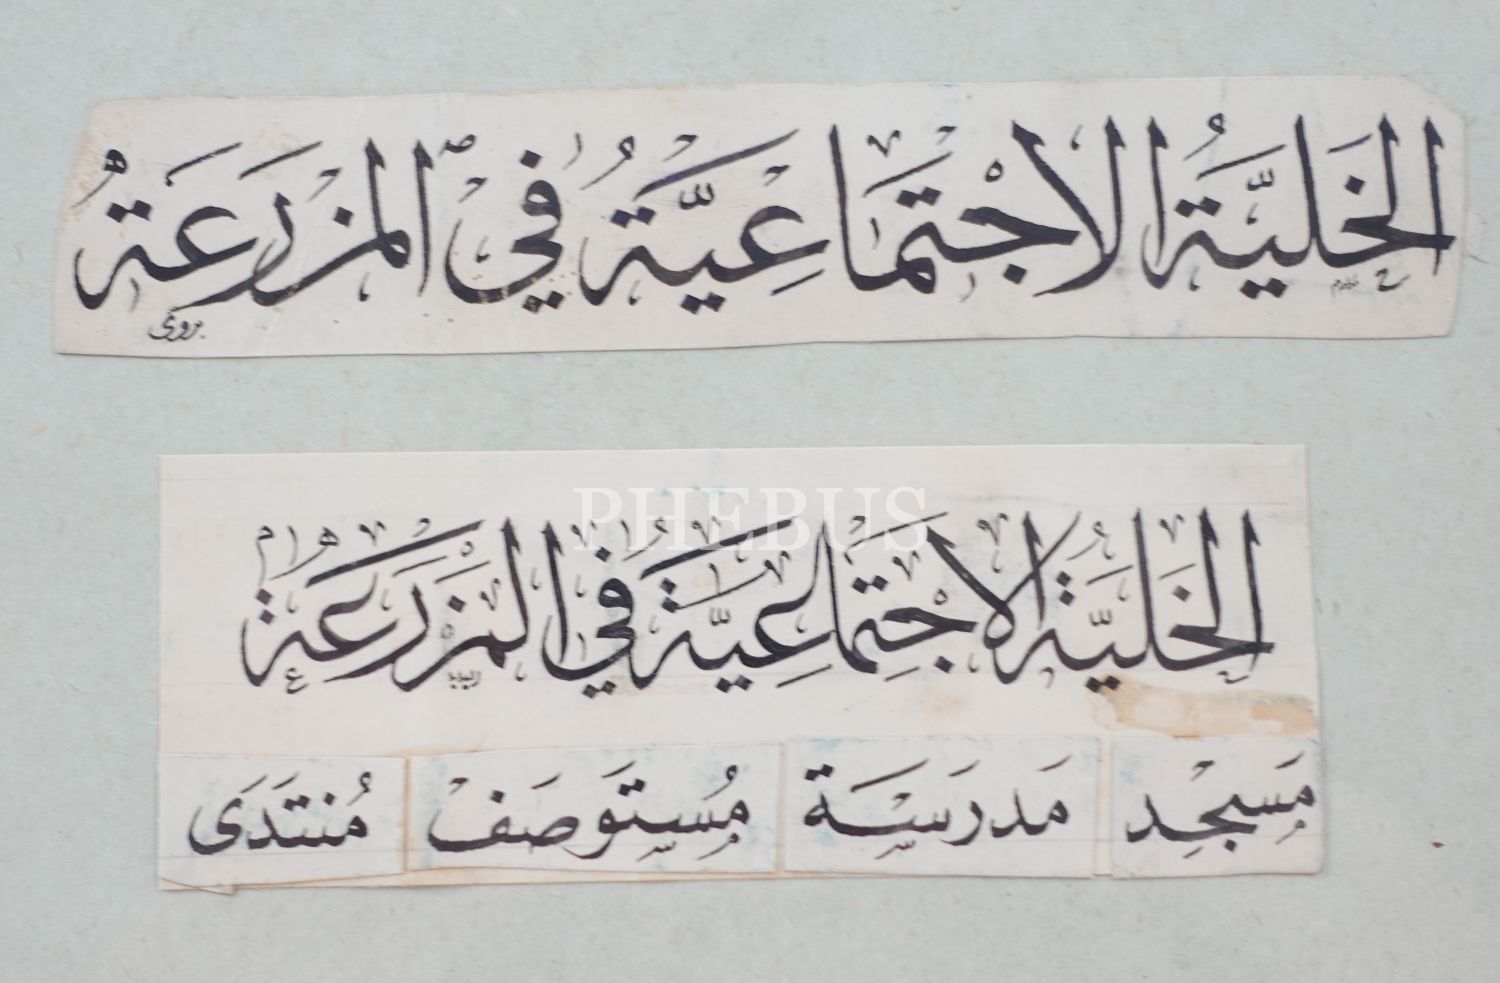 الخَليَّةُ الاجْتِمَاعِيَّةُ في المَزرَعَةُ
PHEBUS
الخَليَّةُ الاجْتِمَاعِيَّةُ في المَزْرَعَةُ
مَسجِد مَدرَسَة مُستَوصَف مُنتَدَى